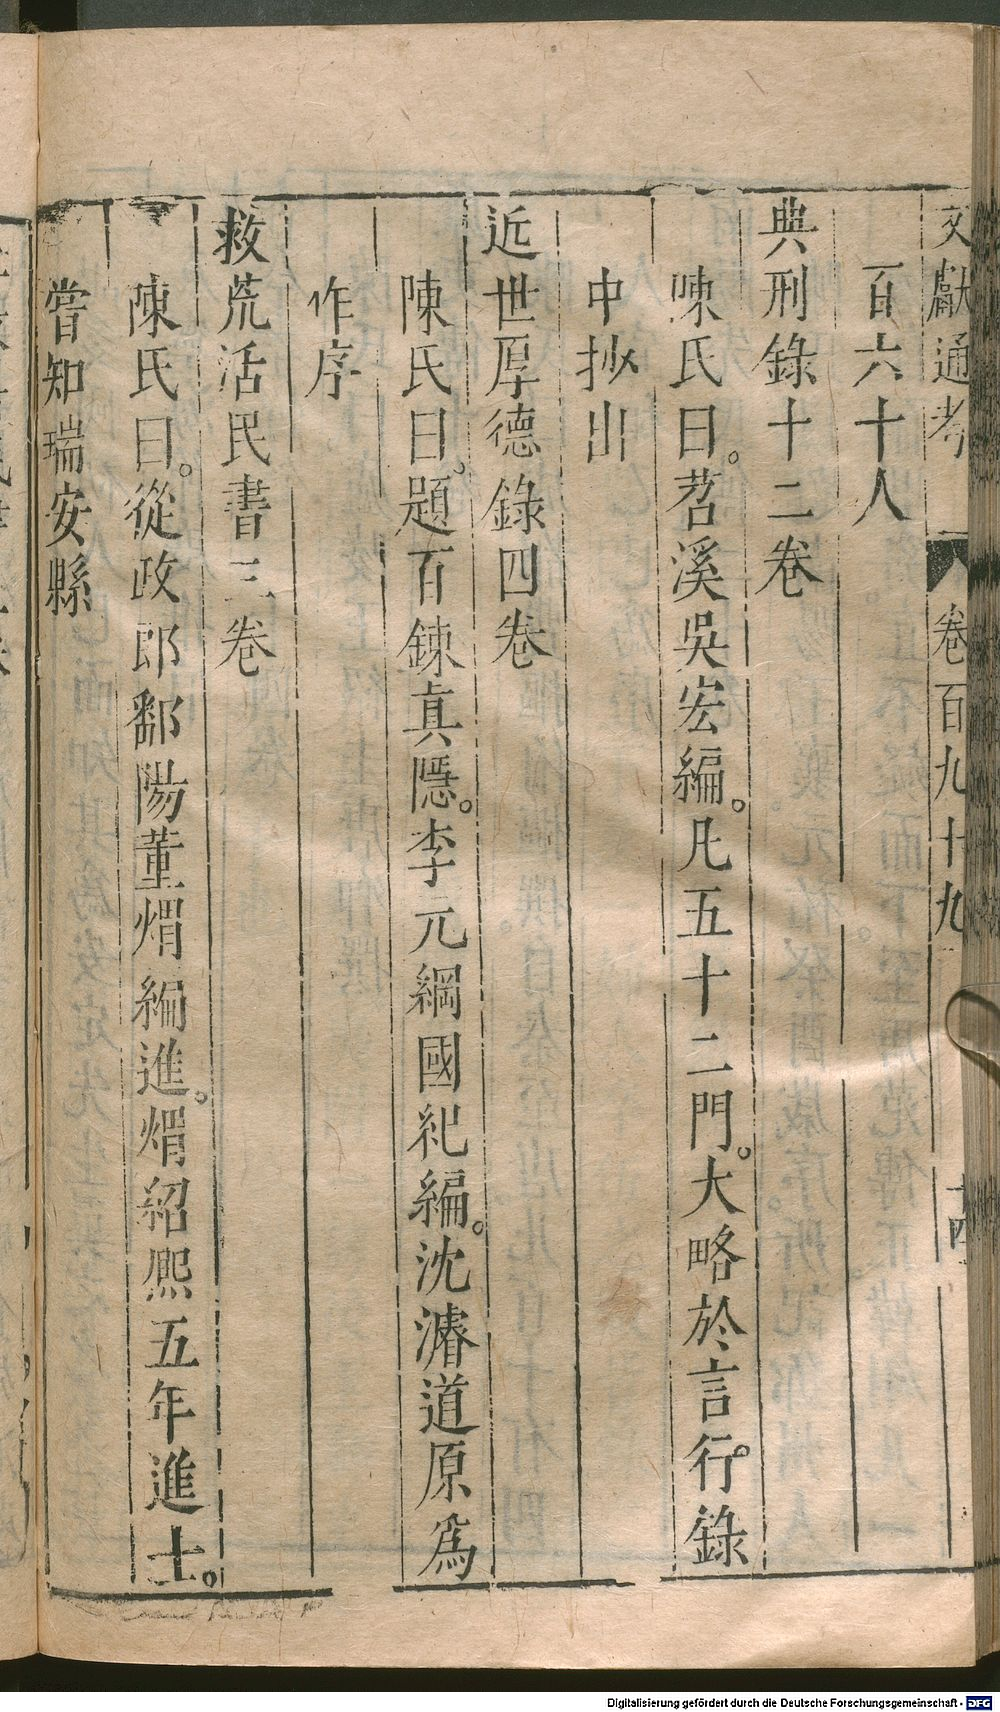 文獻通考 卷百九十九 十四
百六十人
典刑錄十二卷
陳氏曰。苕溪吳宏編。凡五十二門。大略於言行錄
中抄出
近世厚德錄四卷
陳氏曰。題百鍊真隱。李元綱國紀編。沈濬道原爲
作序
救荒活民書三卷
陳氏曰。從政郎鄱陽董煟編進。煟紹熙五年進士。
嘗知瑞安縣
Digitalisierung gefördert durch die Deutsche Forschungsgemeinschaft - DFG